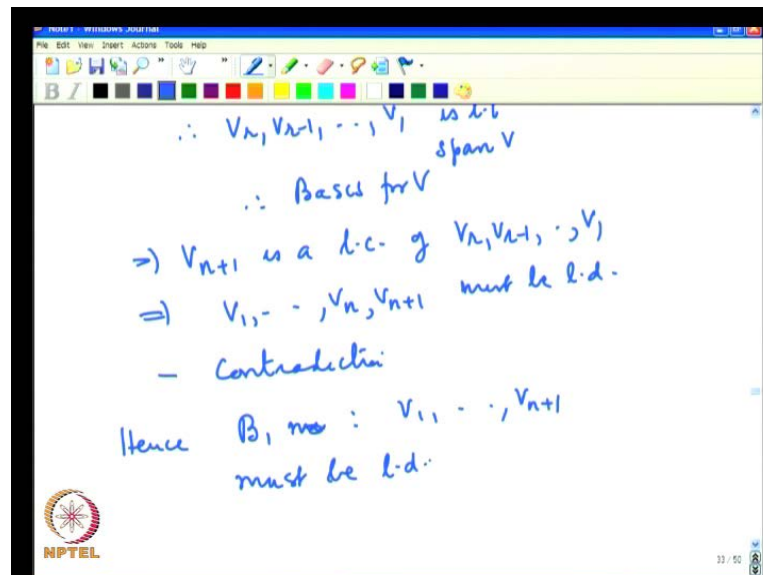 Note1 - Windows Journal
File Edit View Insert Actions Tools Help
B I
∴ Vn, Vn-1, - - , V1 is l.i
span V
∴ Basis for V
⇒) Vn+1 is a l.c. of Vn, Vn-1, - , V1
⇒) V1, - - , Vn, Vn+1 must be l.d.
- Contradiction
Hence B1 : V1, - - , Vn+1
must be l.d.
NPTEL
33 / 50